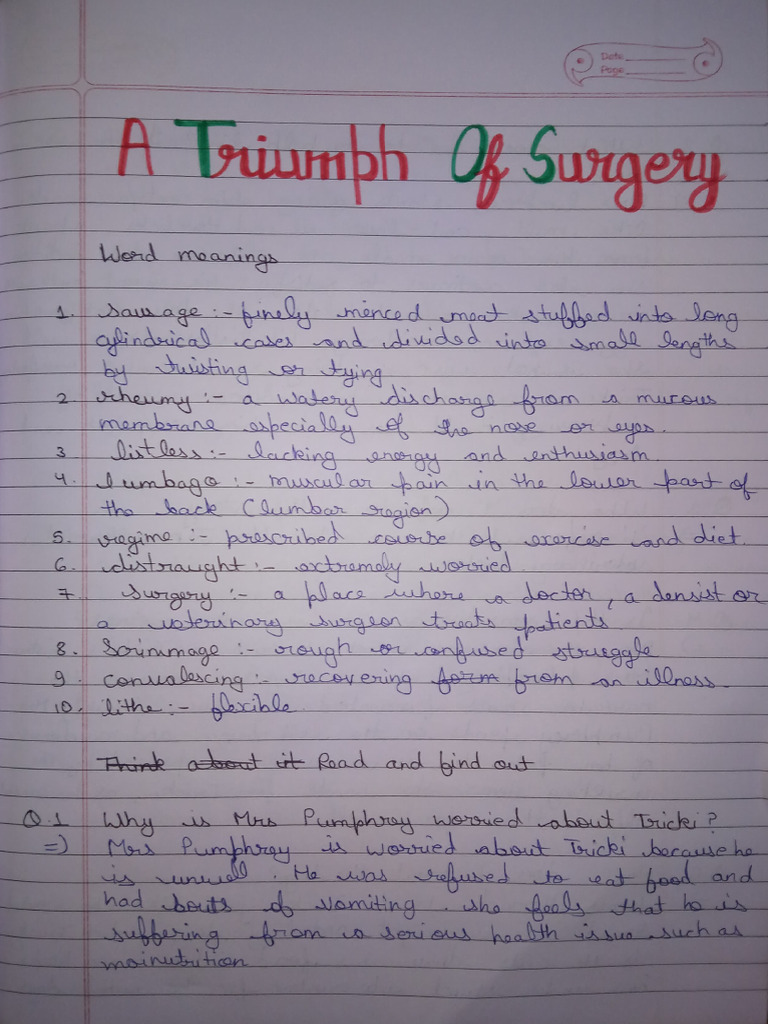 Date
Page
A Triumph Of Surgery
Word meanings
1. sausage :- finely menced meat stuffed into long
cylindrical cases and divided into small lengths
by twisting or tying
2. rheumy :- a watery discharge from a mucous
membrane especially of the nose or eyes.
3 listless :- lacking energy and enthusiasm.
4. lumbago :- muscular pain in the lower part of
the back (lumbar region)
5. regime :- prescribed course of exercise and diet.
6. distraught :- extremely worried
7. surgery :- a place where a doctor, a densist or
a veterinary surgeon treats patients.
8. Scrimmage :- rough or confused struggle
9. convalescing :- recovering form from an illness.
10. lithe :- flexible.
Think about it Read and find out
Q.1 Why is Mrs Pumphrey worried about Tricki?
=) Mrs Pumphrey is worried about Tricki because he
is unwell. He was refused to eat food and
had bouts of vomiting. she feels that he is
suffering from a serious health issue such as
mainutrition